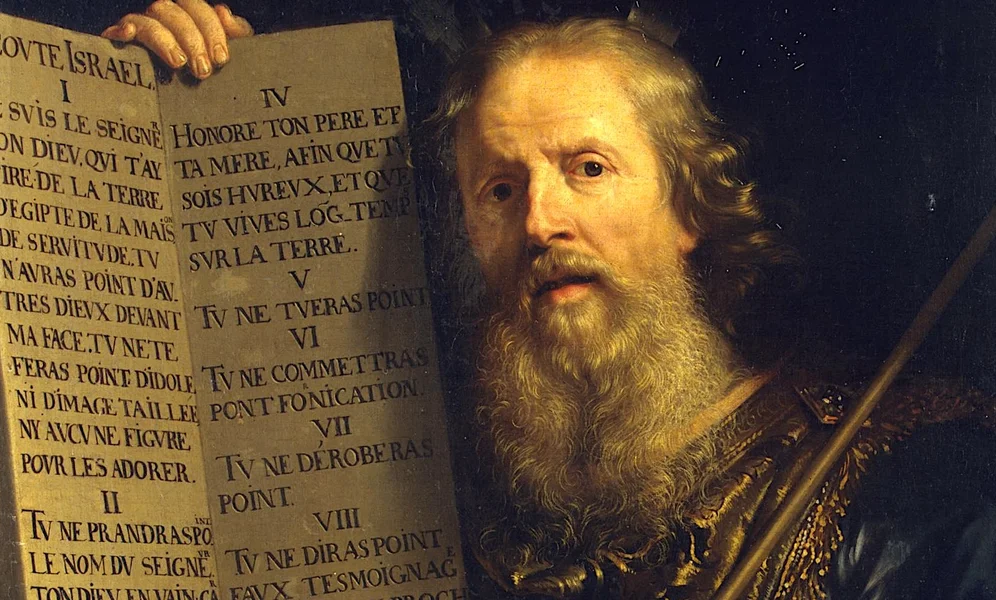 COVTE ISRAEL.
I
SVIS LE SEIGNER
ON DIEV. QVI T'AY
IRÉ DE LA TERRE
D'EGIPTE DE LA MAISON
DE SERVITVDE. TV
N'AVRAS POINT D'AV-
TRES DIEVX DEVANT
MA FACE. TV NE TE
FERAS POINT D'IDOLE,
NI D'IMAGE TAILLEE
NY AVCVNE FIGVRE
POVR LES ADORER.
II
TV NE PRANDRAS POINT
LE NOM DV SEIGNEVR
TON DIEV EN VAIN. CAR
IV
HONORE TON PERE ET
TA MERE, AFIN QVE TV
SOIS HVREVX, ET QVE
TV VIVES LŌG-TEMP
SVR LA TERRE.
V
TV NE TVERAS POINT
VI
TV NE COMMETTRAS
PONT FONICATION.
VII
TV NE DÉROBERAS
POINT.
VIII
TV NE DIRAS POINT
FAVX TESMOIGNAGE
PROCH